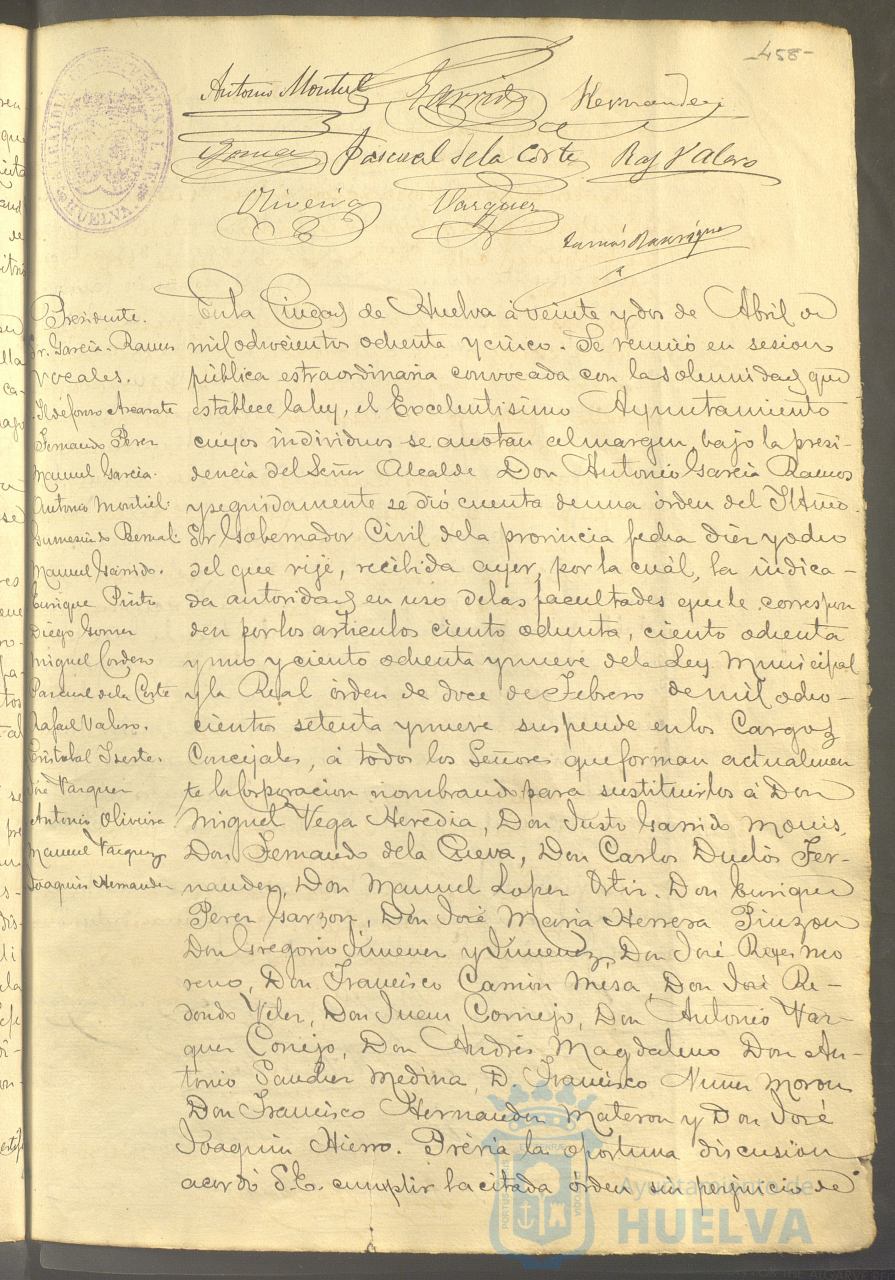 -458-
ALCALDIA CONSTITUCIONAL DE HUELVA
Antonio Montiel Garrido Hernandez
Gomez Pascual de la Corte Raf Valero
Oliveira Vazquez
Presidente.
Sr. Garcia Ramos
Vocales.
Ildefonso Azcarate
Fernando Perez
Manuel Garcia.
Antonio Montiel.
Gumesindo Bernal.
Manuel Garrido.
Enrique Pinto
Diego Gomez
Miguel Cordero
Pascual de la Corte
Rafael Valero.
Cristobal Iserte.
José Vazquez
Antonio Oliveira
Manuel Vazquez
Joaquin Hernandez
En la Ciudad de Huelva á veinte y dos de Abril de
mil ochocientos ochenta y cinco. Se reunió en sesion
pública estraordinaria convocada con la solemnidad que
establece la ley, el Excelentisimo Ayuntamiento
cuyos individuos se anotan al margen, bajo la presi-
dencia del Señor Alcalde Don Antonio Garcia Ramos
y seguidamente se dió cuenta de una órden del Iltmo.
Sr Gobernador Civil de la provincia fecha diez y ocho
del que rije, recibida ayer, por la cuál, la indica-
da autoridad en uso de las facultades que le correspon
den por los artículos ciento ochenta, ciento ochenta
y uno y ciento ochenta y nueve de la Ley Municipal
y la Real órden de doce de Febrero de mil ocho-
cientos setenta y nueve suspende en los Cargos
Concejales, á todos los Señores que forman actualmen
te la Corporacion nombrando para sustituirlos á Don
Miguel Vega Heredia, Don Justo Garrido Mouis,
Don Fernando de la Cueva, Don Carlos Duclós Fer-
nandez, Don Manuel Lopez Ortiz. Don Enrique
Perez Garzon, Don José Maria Herrera Pinzon
Don Gregorio Jimenez y Jimenez, Don José Reyes Mo-
reno, Don Francisco Carrion Mesa, Don José Re-
dondo Velez, Don Juan Cornejo, Don Antonio Vaz-
quez Conejo, Don Andrés Magdaleno Don An-
tonio Sanchez Medina, D. Francisco Nuñez Moron
Don Francisco Hernandez Materon y Don José
Joaquin Hierro. Prévia la oportuna discusion
acordó S.E. cumplir la citada órden sin perjuicio de
Ayuntamiento de
HUELVA